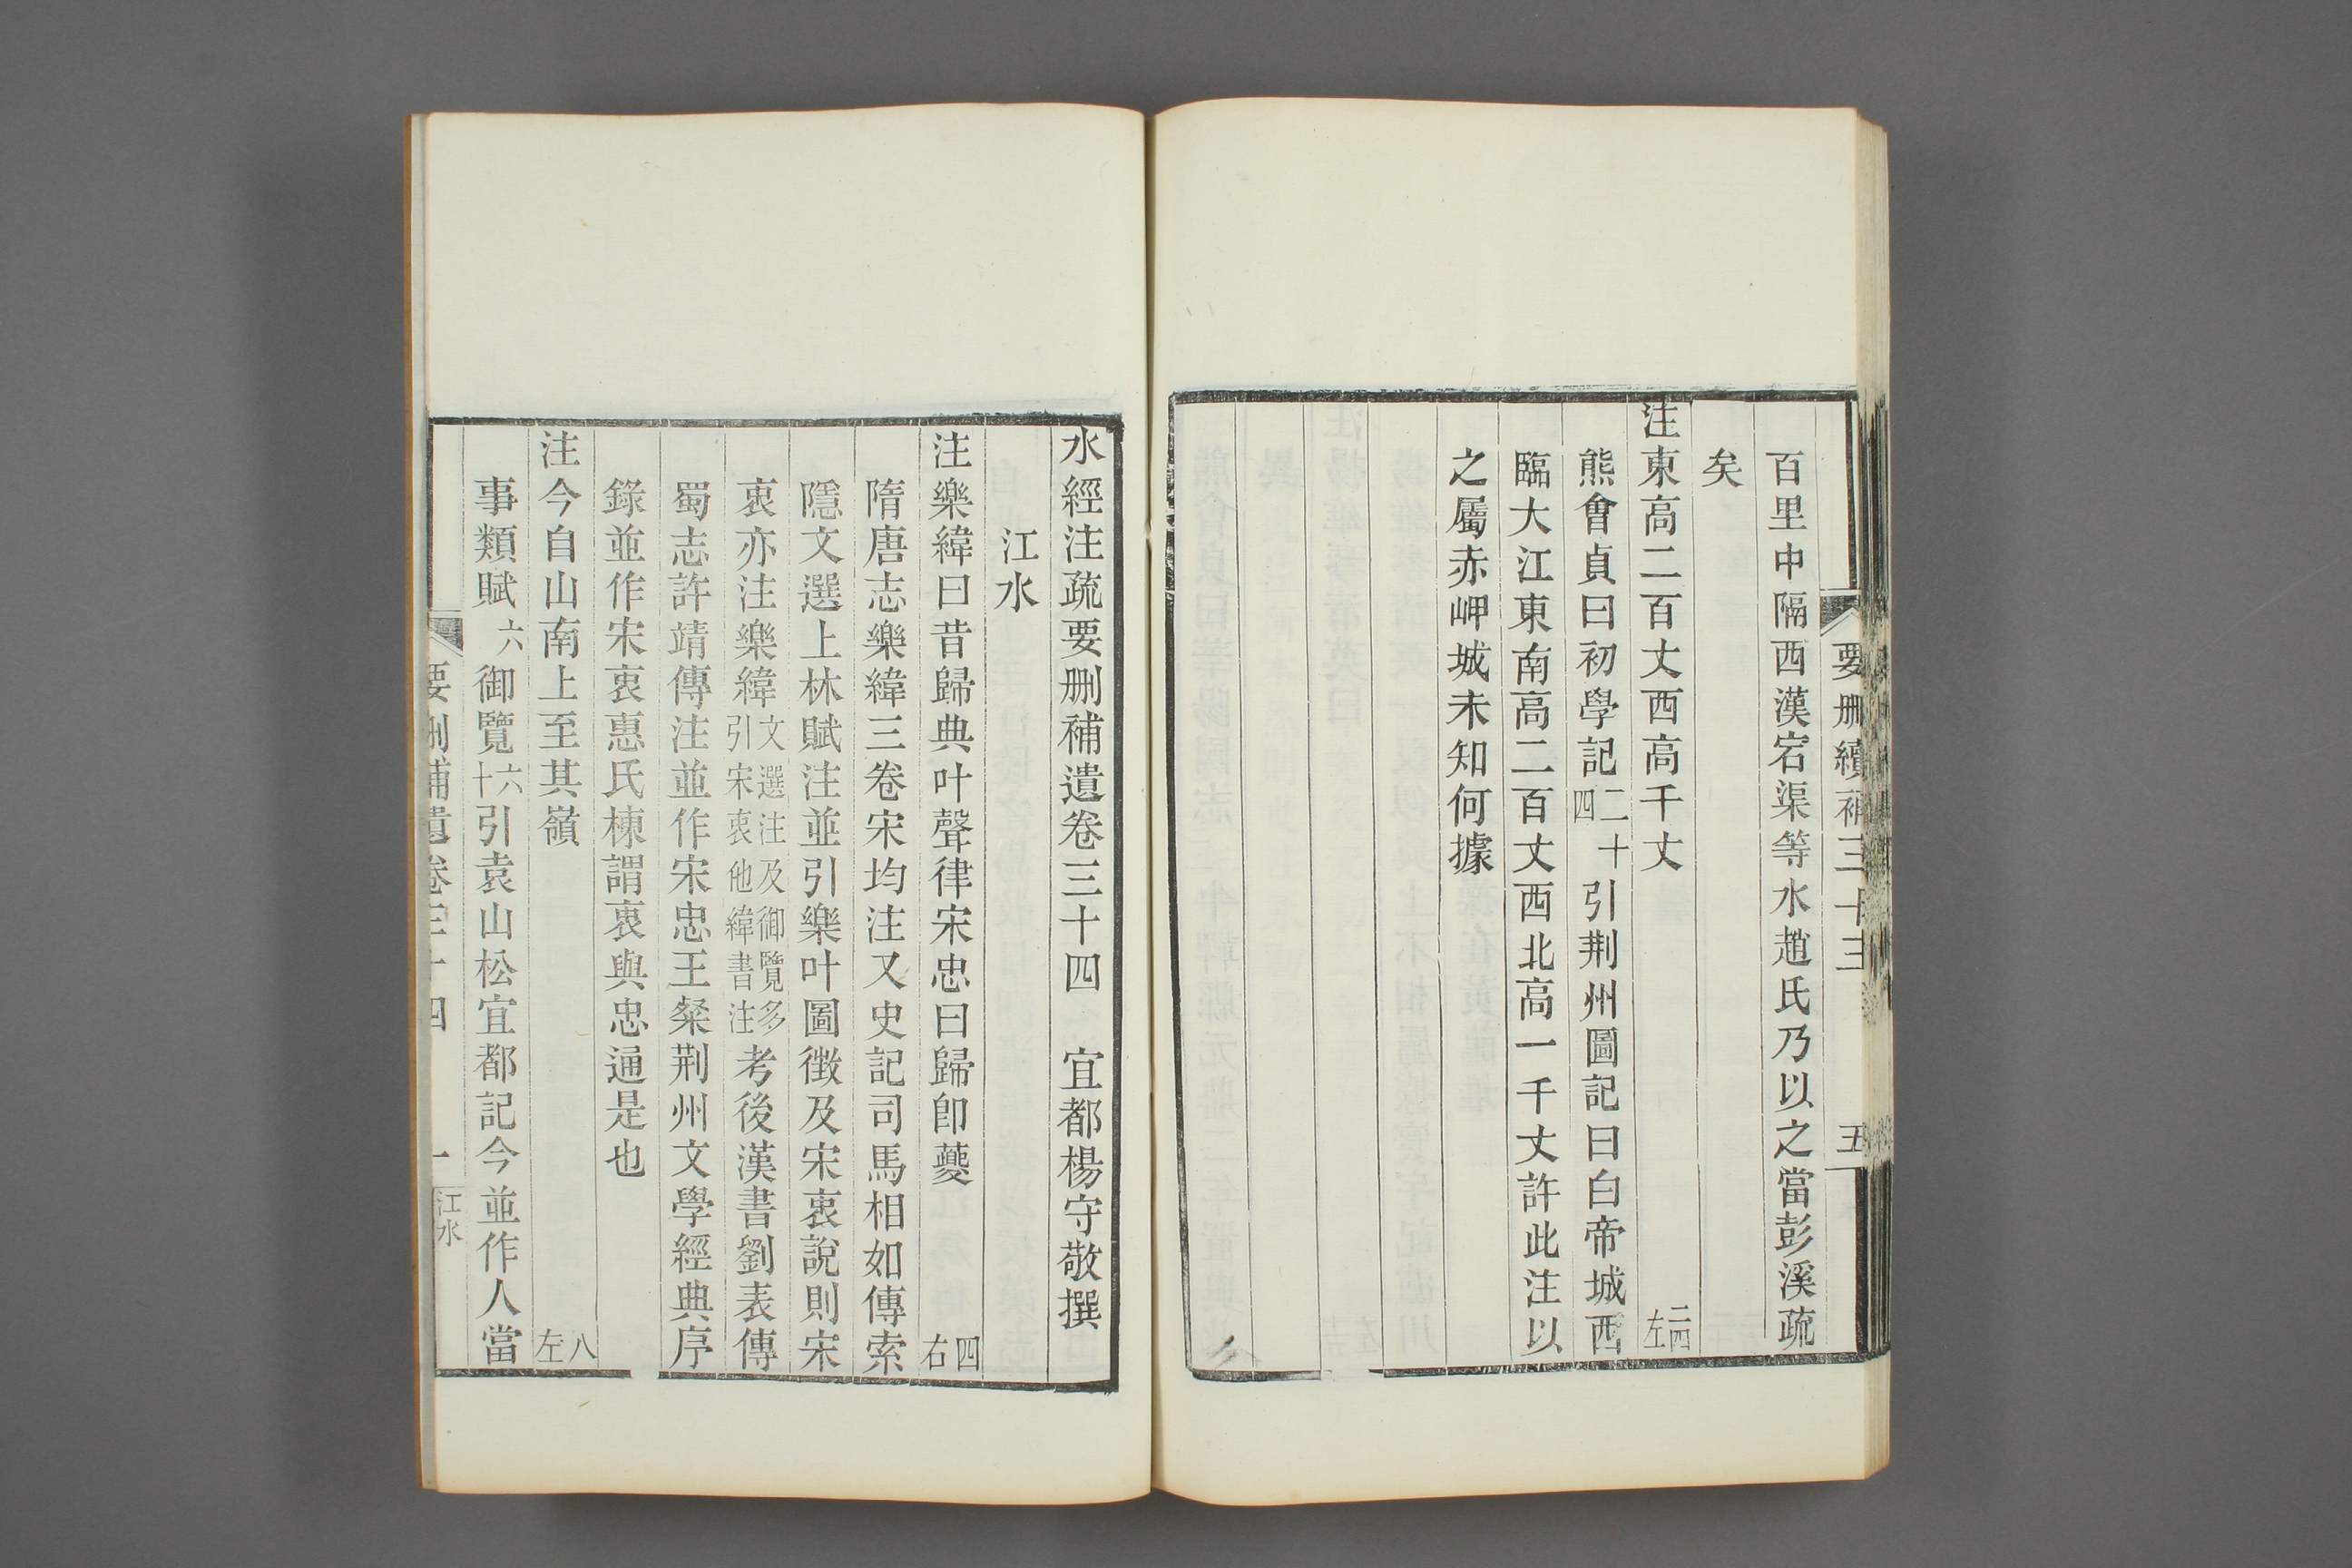 要刪續補三十三　五
百里中隔西漢宕渠等水趙氏乃以之當彭溪疏
矣
注東高二百丈西高千丈　二四左
熊會貞曰初學記二十四引荆州圖記曰白帝城西
臨大江東南高二百丈西北高一千丈許此注以
之屬赤岬城未知何據
水經注疏要刪補遺卷三十四　宜都楊守敬撰
江水
注樂緯曰昔歸典叶聲律宋忠曰歸卽夔　四右
隋唐志樂緯三卷宋均注又史記司馬相如傳索
隱文選上林賦注並引樂叶圖徵及宋衷說則宋
衷亦注樂緯文選注及御覽多引宋衷他緯書注考後漢書劉表傳
蜀志許靖傳注並作宋忠王粲荆州文學經典序
錄並作宋衷惠氏棟謂衷與忠通是也
注今自山南上至其嶺　八左
事類賦六御覽六十引袁山松宜都記今並作人當
要刪補遺卷三十四　一　江水